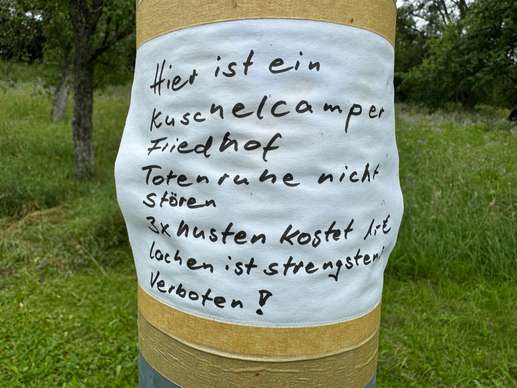 Hier ist ein
Kuschelcamper
Friedhof
Totenruhe nicht
stören
3x husten kostet 1,- €
lachen ist strengstens
Verboten !